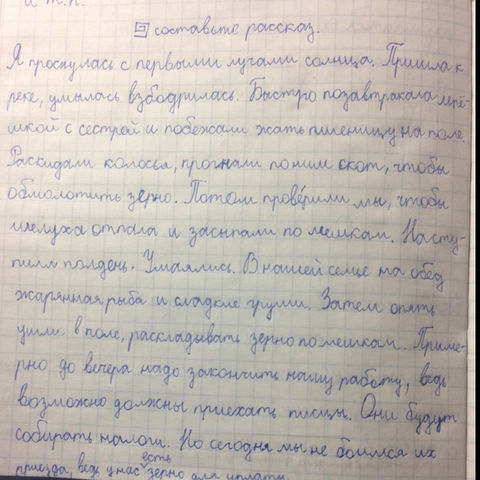 и т.п.
5 составьте рассказ.
Я проснулась с первыми лучами солнца. Пришла к
реке, умылась взбодрилась. Быстро позавтракала лепё-
шкой с сестрой и побежали жать пшеницу на поле.
Раскидали колосья, прогнали по ним скот, чтобы
обмолотить зерно. Потом проверили мы, чтобы
шелуха отпала и засыпали по мешкам. Насту-
пили полдень. Умаялись. В нашей семье на обед
жаренная рыба и сладкие груши. Затем опять
ушли в поле, раскладывать зерно по мешкам. Приме-
рно до вечера надо закончить нашу работу, ведь
возможно должны приехать писцы. Они будут
собирать налоги. Но сегодня мы не боимся их
приезда, ведь у нас есть зерно для уплаты.